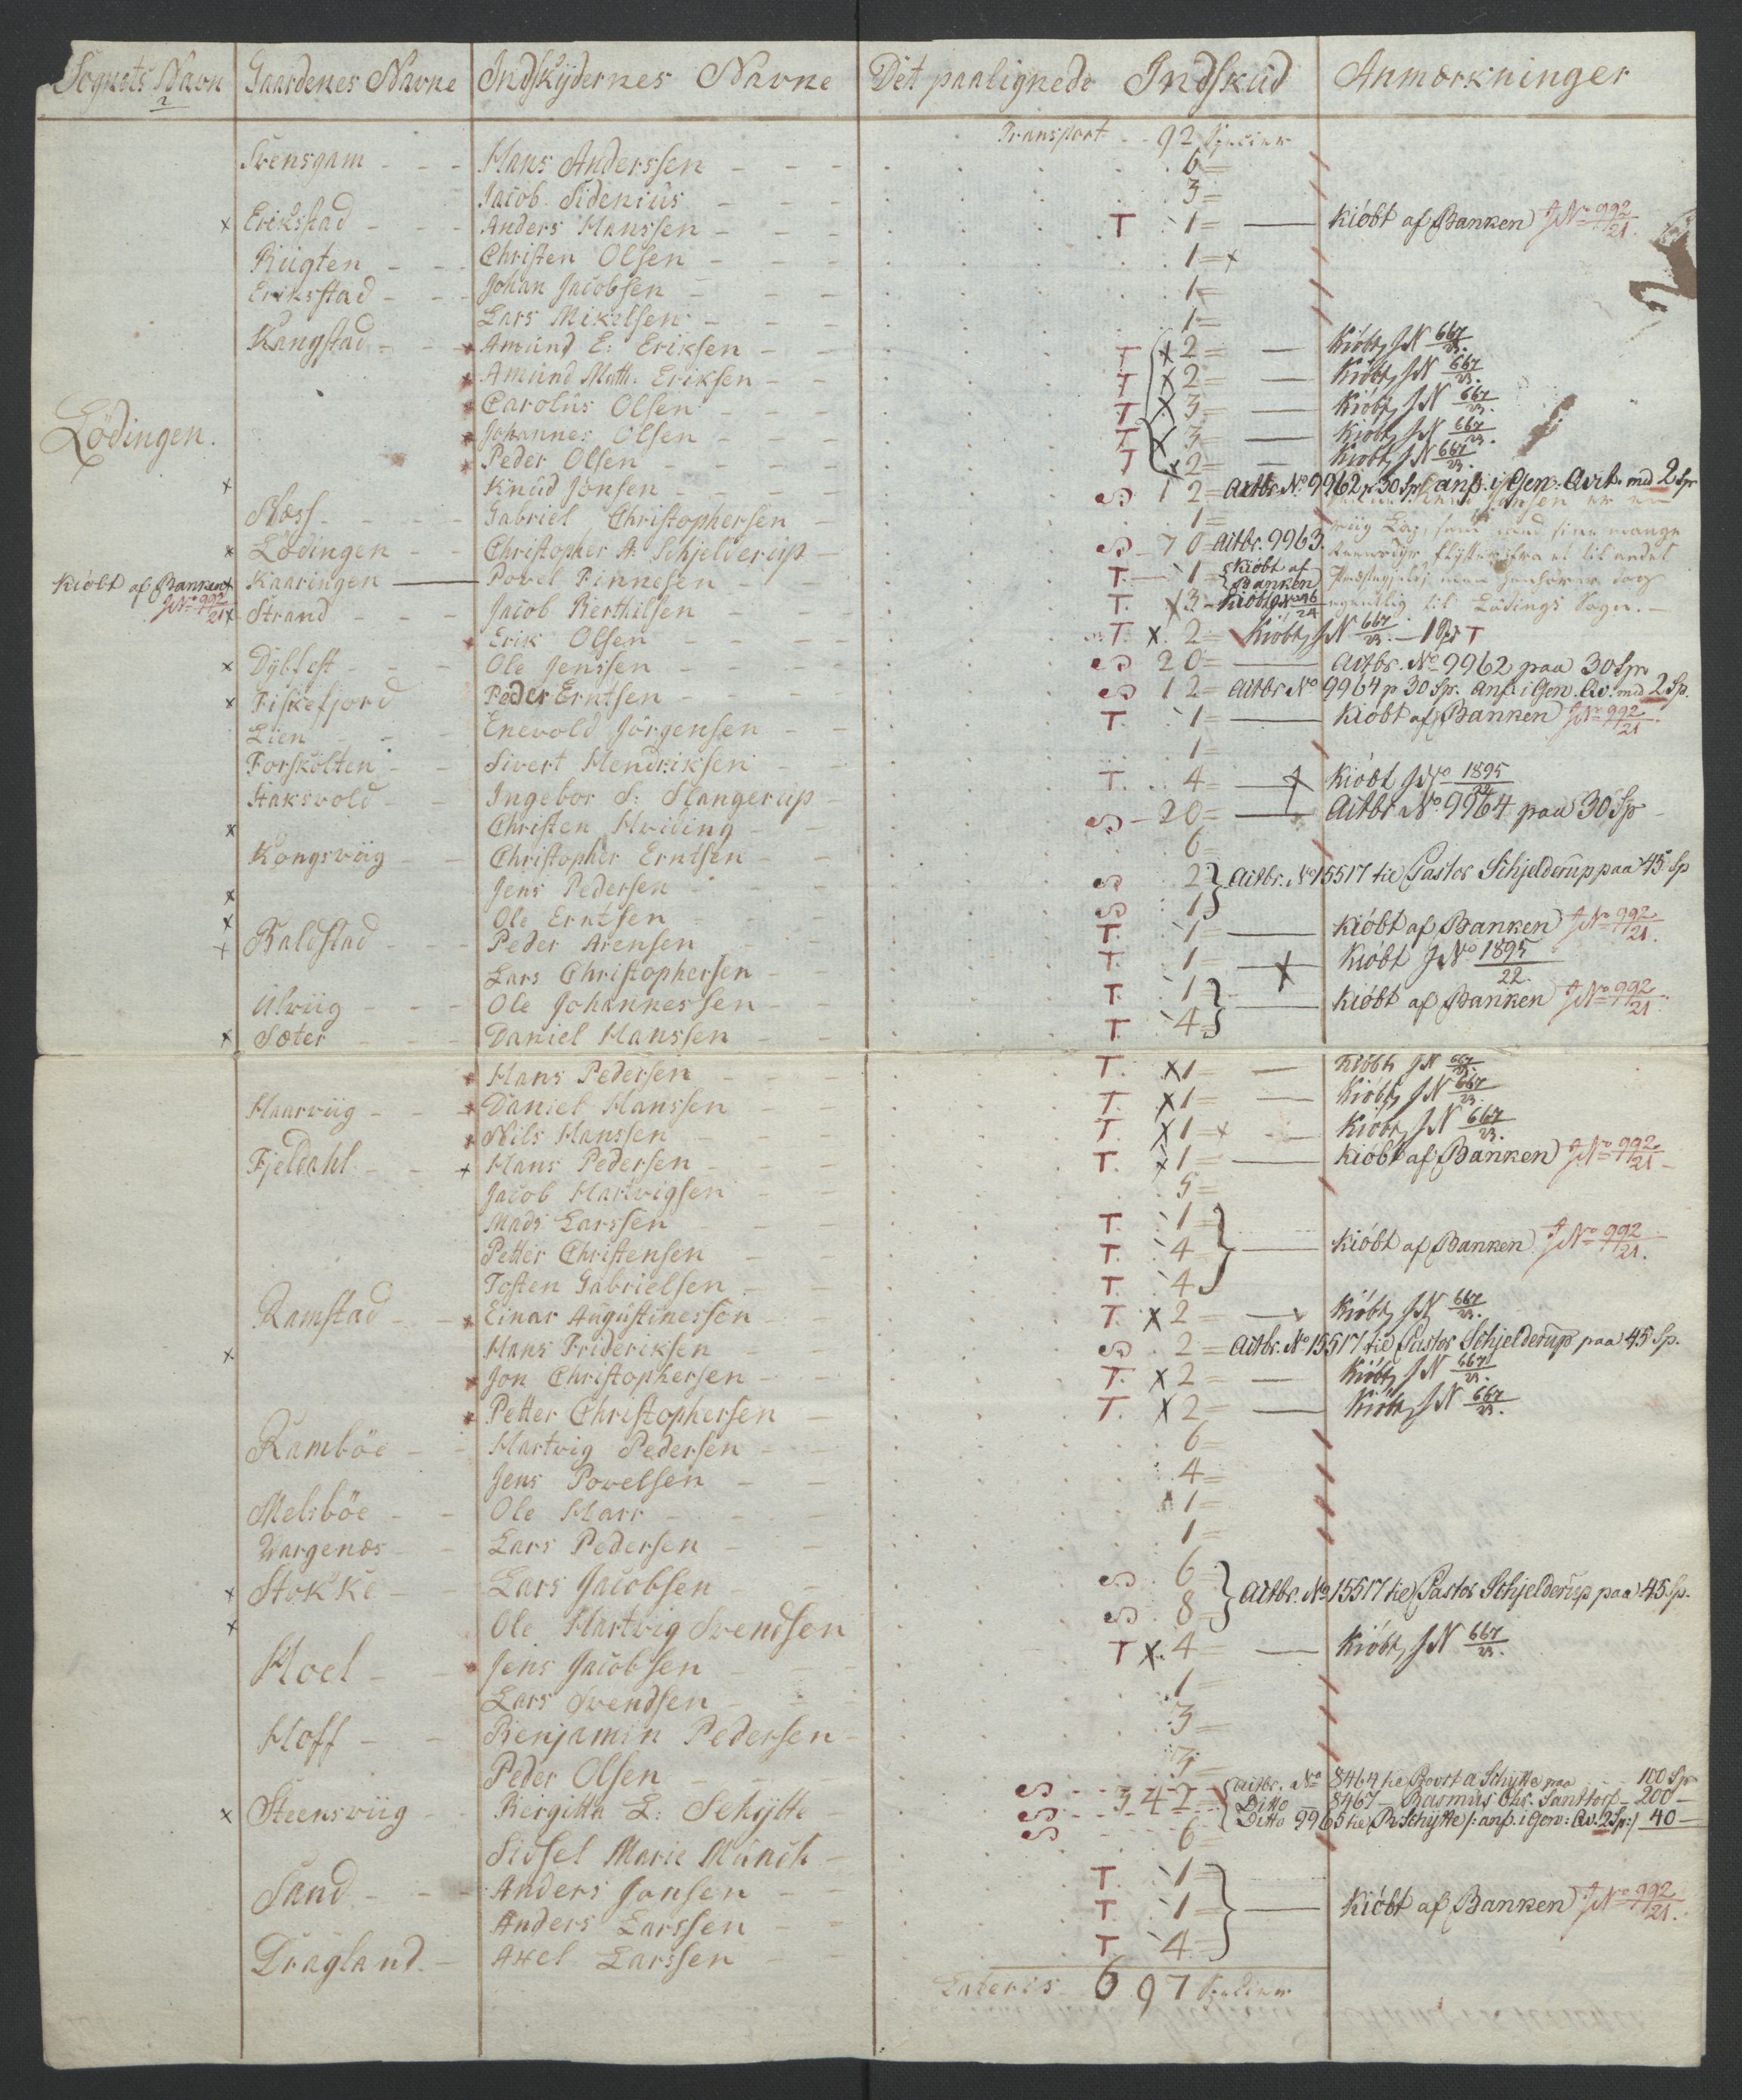 Sognets Navn Gaardenes Navne Indskydernes Navne Det paalignede Indskud Anmærkninger
Transport 92 Specier
Svensgam - - - Hans Anderssen - - - 6=
Jacob Sidenius - - - 3=
x Eriksstad - - - Anders Hanssen - - - T 1= — Kiöbt af Banken J No 992/21.
Rügten - - - Christen Olsen - - - 1=x
Eriksstad - - - Johan Jacobsen - - - 1=
Lars Mikelsen - - - 1=
Kangstad - - x Amund E: Eriksen - - T x 2= — Kiöbt JN 667/23.
x Amund Math. Eriksen - - T x 2= — Kiöbt JN 667/23.
x Carolus Olsen - - - T x 3= — Kiöbt JN 667/23.
Lödingen. x Johannes Olsen - - - T x 3= — Kiöbt JN 667/23.
x Peder Olsen - - - T x 2= — Kiöbt JN 667/23.
x Knud Jonsen - - - S 12= Actbr. No 9962 p 30 Sp: anf. i Gen: Qvit. med 2 Sp
Næss - - - Gabriel Christophersen - 1=
x Lödingen - - Christopher A. Schjelderup - S - 70= Actbr. 9963.
Kiöbt af Banken x Kaaringen — Povel Finnesen - - T. — 1= Kiöbt af Banken
J No 992/21 x Strand - - - Jacob Berthilsen - - - T. x 3- Kiöbt
egentlig til Lödings Sogn. —
x Erik Olsen - - - T. x. 2= Kiöbt JN 667/23. — 1 Sp T
x Dybfest - - - Ole Jenssen - - - S 20= — Actbr. No 9962 paa 30 Sp.
x Fiskefjord Peder Erntsen - - - S 12= Actbr No 9964 p 30 Sp. anf. i Gen. Qv. md 2 Sp.
Lien - - - Enevold Jörgensen - - T. 1= — Kiöbt af Banken J No 992/21.
Forskolten - - Sivert Hendriksen - - 1=
Haksvold - - Ingebor S: Slangerup - T. 4= — x Kiöbt J No 1895/22
x Christen Hviding - - S - 20= — Actbr No 9964 paa 30 Sp -
Kongsviig - - Christopher Erntsen - - 6=
x Jens Pedersen - - - S 2 } Actbr. No 15517 til Pastor Schjelderup paa 45 Sp
x Ole Erntsen - - - S 1 }
x Baldstad - - - Peder Arensen - - T. 1= — Kiöbt af Banken J No 992/21.
Lars Christophersen - - T. 1 — x Kiöbt J No 1895/22.
Ulviig - - - Ole Johannessen - - T. 1= } — Kiöbt af Banken J No 992/21.
x Sæter - - - Daniel Hanssen - - T. 4= }
x Hans Pedersen - - - T. x1= — Kiöbt JN 667/23.
Haarviig - - x Daniel Hanssen - - T. x1= — Kiöbt JN 667/23.
x Nils Hanssen - - - T. x1=x — Kiöbt JN 667/23.
Fjeldahl - - x Hans Pedersen - - - T. x1= — Kiöbt af Banken J No 992/21
Jacob Hartvigsen - - 5=
Mads Larssen - - - T. 1= }
Petter Christensen - - T. 4= } — Kiöbt af Banken J No 992/21.
Tosten Gabrielsen - - T. 4 }
Ramstad - - x Einar Augustinessen - - T. x 2= — Kiöbt JN 667/23.
x Hans Frideriksen - - S 2= Actbr. No 15517 til Pastor Schjelderup paa 45 Sp.
x Jon Christophersen - - T. x 2= — Kiöbt JN 667/23.
x Petter Christophersen - T. x 2= — Kiöbt JN 667/23.
Ramböe - - Hartvig Pedersen - - 6=
Jens Povelsen - - 4=
Melsböe - - Ole Harr - - - 1=
Wargenæs - - Lars Pedersen - - 1=
x Stokke - - Lars Jacobsen - - S 6= } Actbr. No 15517 til Pastor Schjelderup paa 45 Sp.
x Ole Hartvig Svendsen S. 8= }
Hoel - - x Jens Jacobsen - - - T x. 4= — Kiöbt JN 667/23.
Lars Svendsen - - - 1=
Hoff - - Benjamin Pedersen - 3=
Peder Olsen - - - 3=
x Steensviig - - Bergitta L: Schytte S - - 342= { Actbr. No 8464 til Provst A Schytte paa - 100 Sp
S Ditto — 8467 — Rasmus Chr. Santtorf - 200 -
S Ditto 9965 til R Schytte /: anf. i Gen: Qv. 2 Sp:/ 40 -
Sidsel Marie Münch - 6=
Sand - - - Anders Jonsen - - T. 1= }
Anders Larssen - - T. 1= } — Kiöbt af Banken J No 992/21.
Dragland. - Axel Larssen - - T. 4= }
Lateris 697 Specier